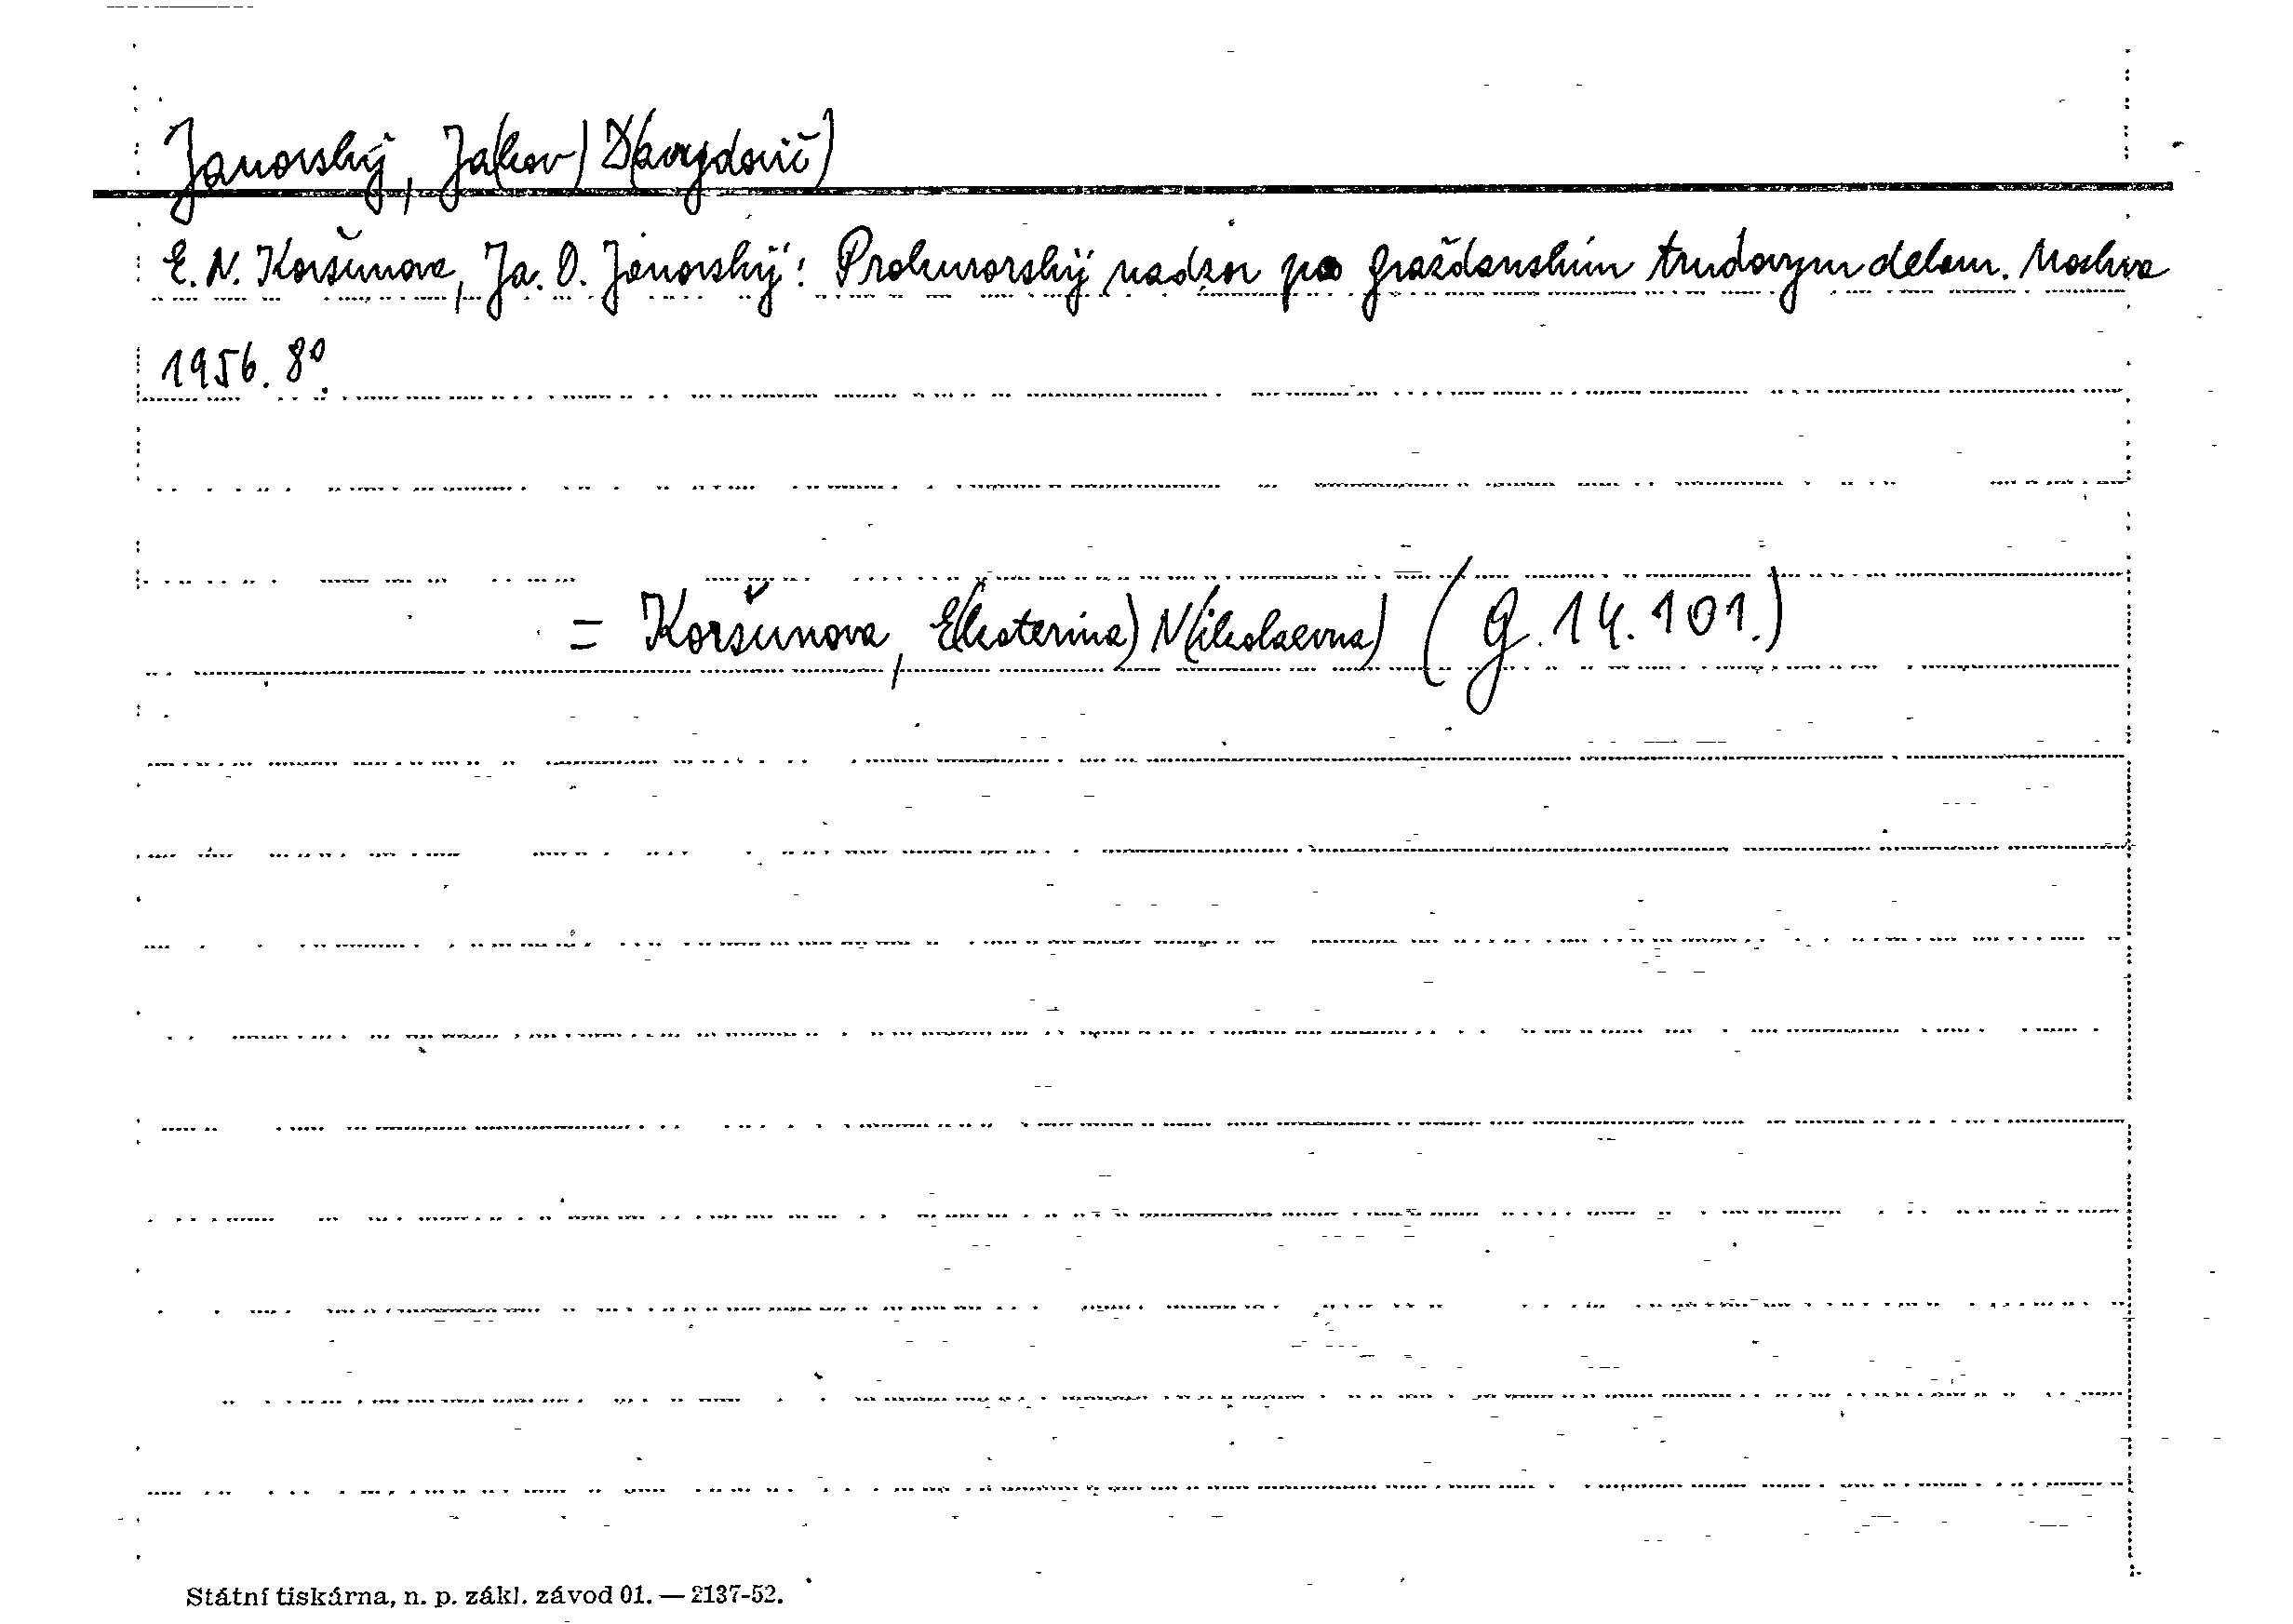 Janovskij, Ja(kov) D(avydovič)
E. N. Koršunova, Ja. D. Janovskij: Prokurorskij nadzor po graždanskim trudovym delam. Moskva
1956. 8°.
= Koršunova, E(katerina) N(ikolaevna) (G. 14. 101.)
Státní tiskárna, n. p. zákl. závod 01. — 2137-52.